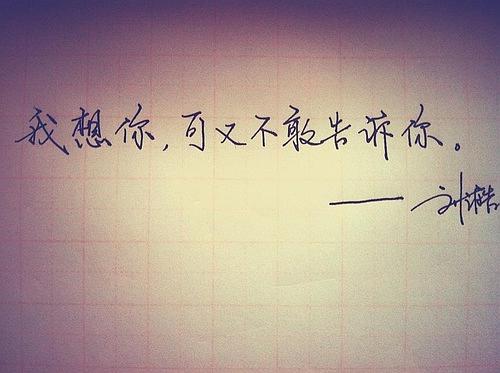 我想你,可又不敢告诉你。
——刘